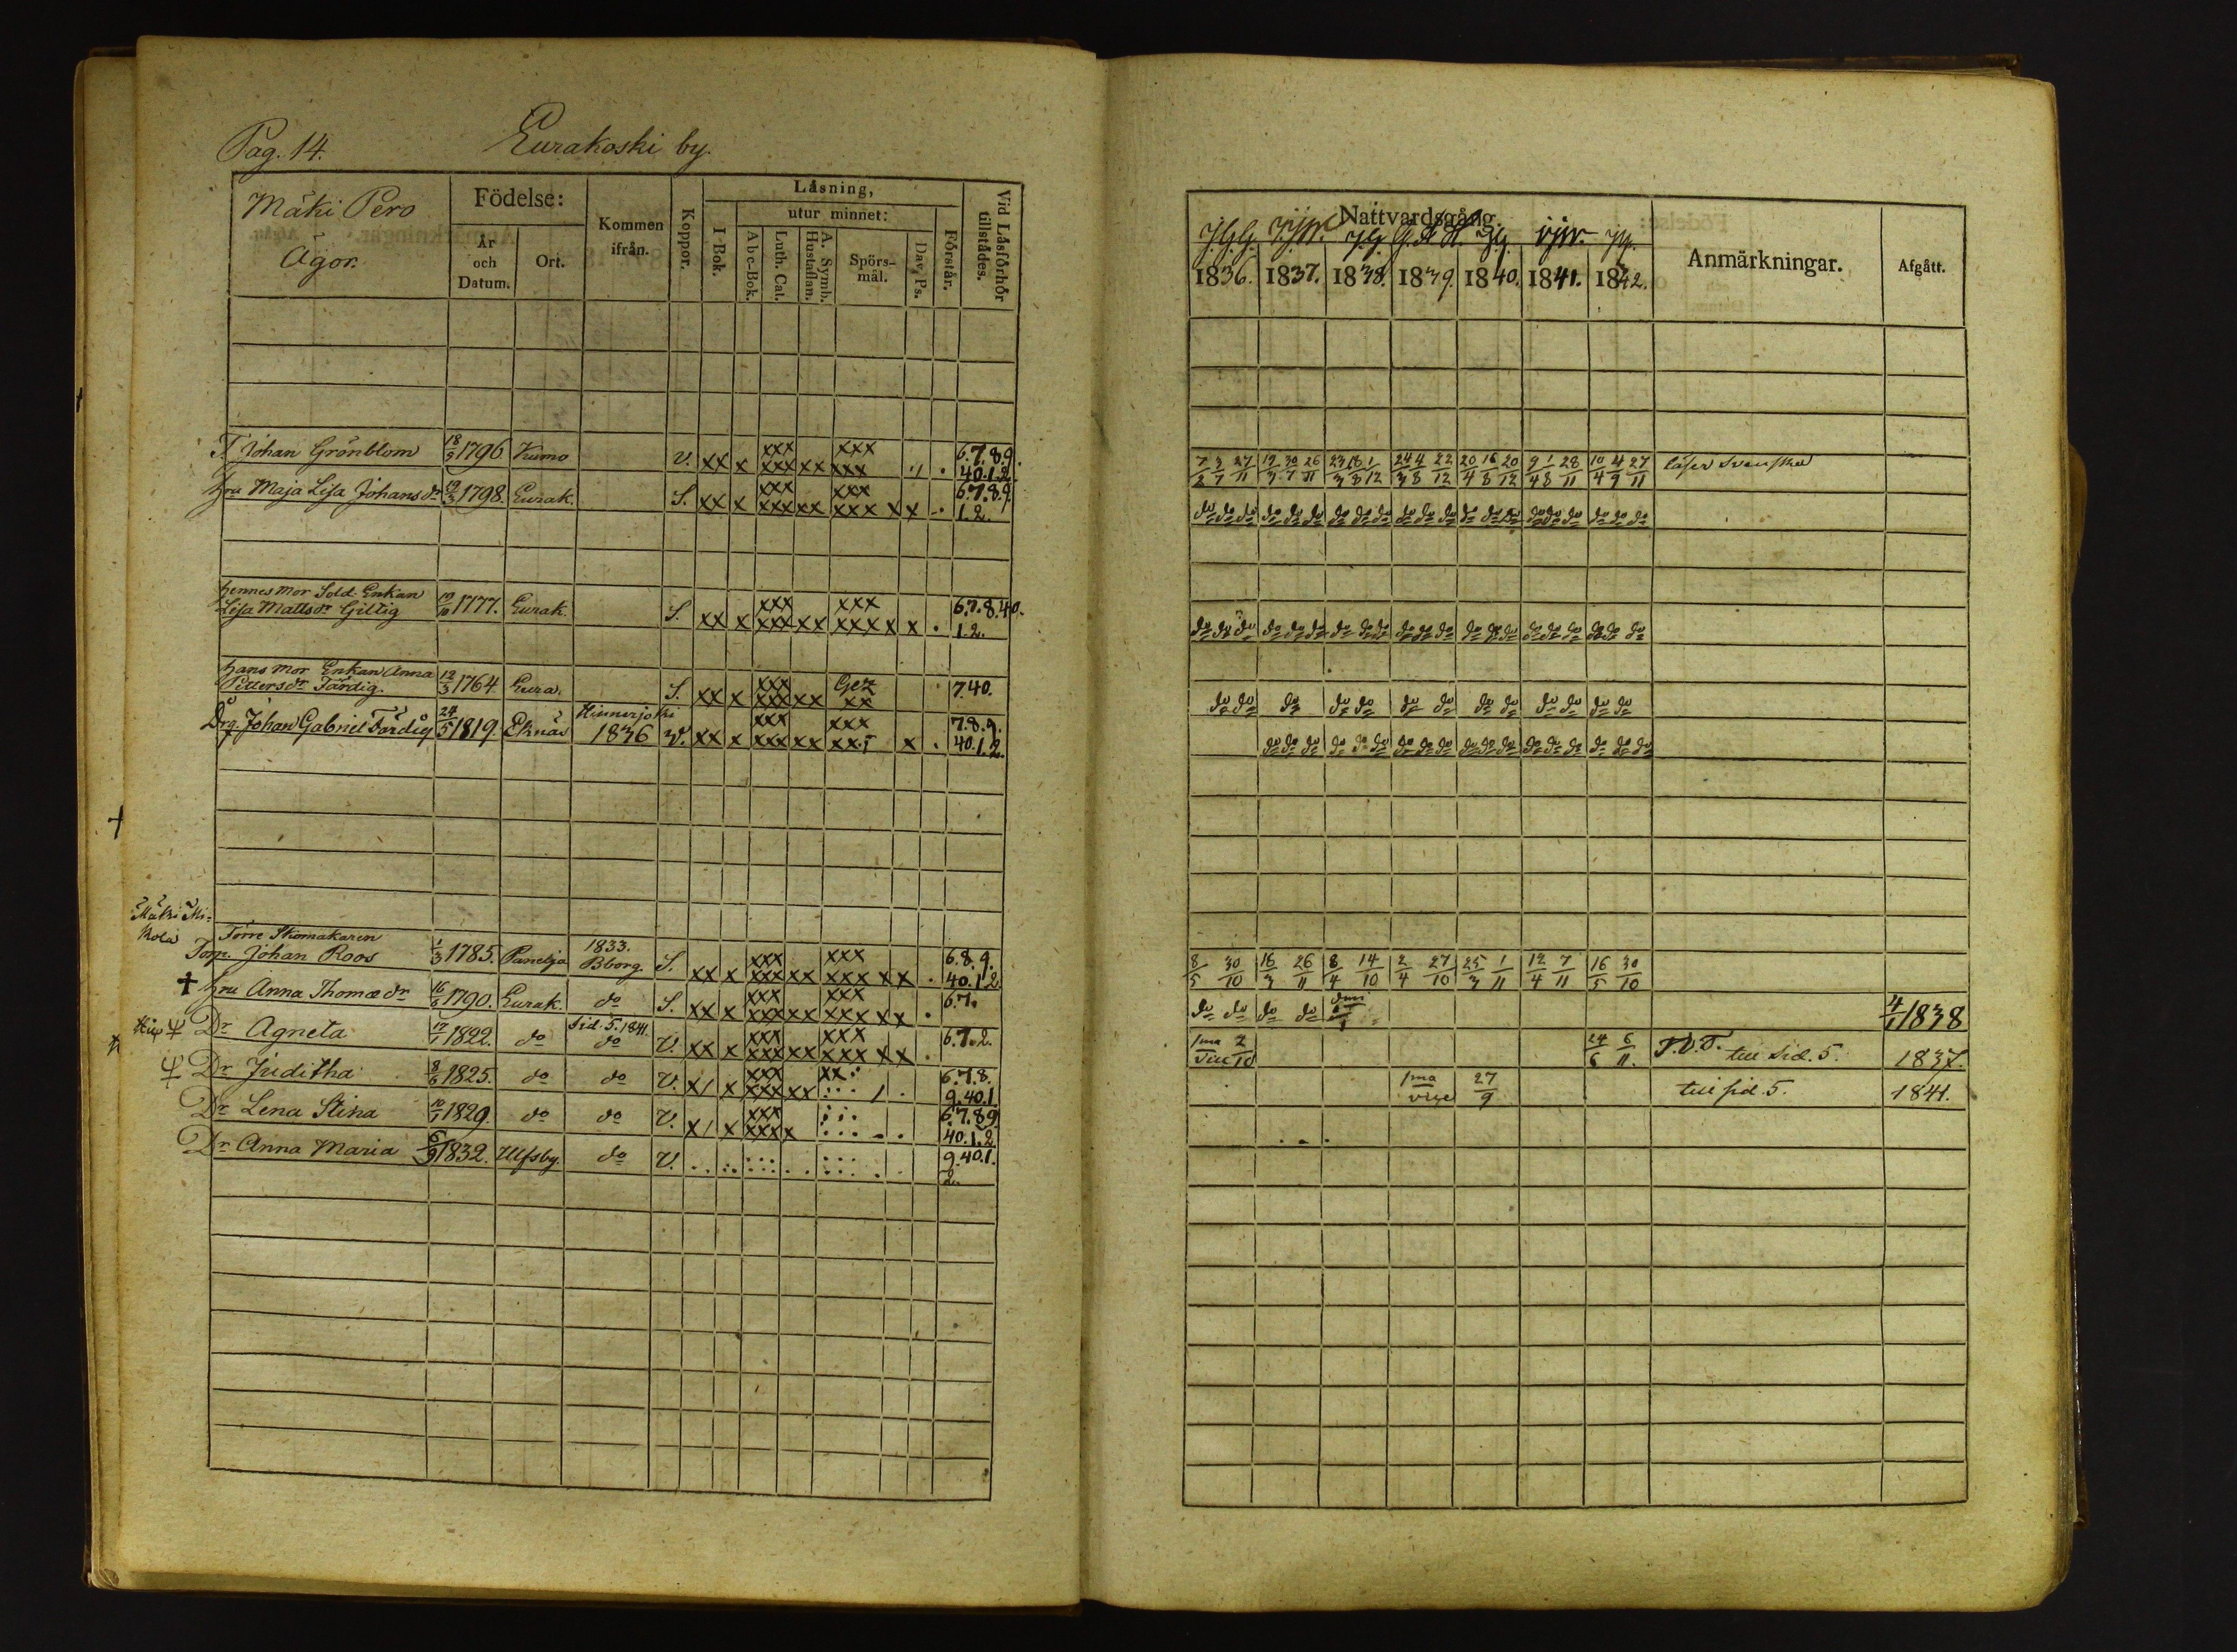 Pag. 14. Eurakoski by.
Mäki Pero
Ägor.
Födelse:
År
och
Datum.
Ort.
Kommen
ifrån.
Koppor.
Läsning,
I-Bok.
utur minnet:
Abc-Bok.
Luth. Cat.
A. Symb.
Hustaflan.
Spörs-
mål.
Dav. Ps.
Förstår.
Vid Läsförhör
tillstådes.
T Johan Grönblom 18/9 1796 Kumo v. xx x xxx xxx xx xxx xxx 6.7.8.9. 40.1.2.
hru Maja Lisa Johans dr 19/3 1798. Eurak. S. xx x xxx xxx xx xxx xxx x x 6.7.8.9. 1.2.
hennes mor Sold. Enkan
Lisa Matts dr Giltig 19/10 1777. Eurak. S. xx x xxx xxx xx xxx xxx x x 6.7.8.40. 1.2.
hans mor Enkan Anna
Petters dr Färdig. 12/3 1764 Eura. S. xx x xxx xxx xx Gez xx 7.40.
Drg. Johan Gabriel Färdig 24/5 1819. Eknäs Hinnerjoki 1836 v. xx x xxx xxx xx xxx x 7.8.9. 40.1.2.
Mäki Mi-
kola
Förre Skomakaren
Torp. Johan Roos 1/3 1785. Panelja 1833. Bborg. S. xx x xxx xxx xx xxx xxx xx 6.8.9. 40.1.2
† hru Anna Thomæ dr 16/6 1790. Eurak. do S. xx x xxx xxx xx xxx xxx xx 6.7.
Dr Agneta 17/1 1822. do Sid. 5. 1841. do V. xx x xxx xxx xx xxx xxx xx 6.7.2.
Dr Juditha 8/6 1825. do do V. x/ x xxx xxx xx 6.7.8. 9.40.1
Dr Lena Stina 10/7 1829. do do V. x/ x xxx xxx x 6.7.8.9. 40.1.2
Dr Anna Maria 6/9 1832. Ulfsby. do V. 9.40.1. 2.
Nattvardsgång.
1836. 1837. 1838. 1839. 1840. 1841. 1842.
Anmärkningar.
Afgått.
7/2 3/7 27/11 19/3 30/7 26/11 23/3 18/8 1/12 24/3 4/8 22/12 20/4 16/8 20/12 9/4 1/8 28/11 10/4 4/9 27/11 läser Svenska
do do do do do do do do do do do do do do do do do do do do do
do do do do do do do do do do do do do do do do do do do do do
do do do do do do do do do do do do do
do do do do do do do do do do do do do do do do do do
8/5 30/10 16/3 26/11 8/4 14/10 2/4 27/10 25/3 1/11 12/4 7/11 16/5 30/10
do do do do 4/1 1838
1ma vice 2/10 24/6 6/11. T.V.T. till Sid. 5. 1837.
1ma vice 27/9 till sid. 5. 1841.